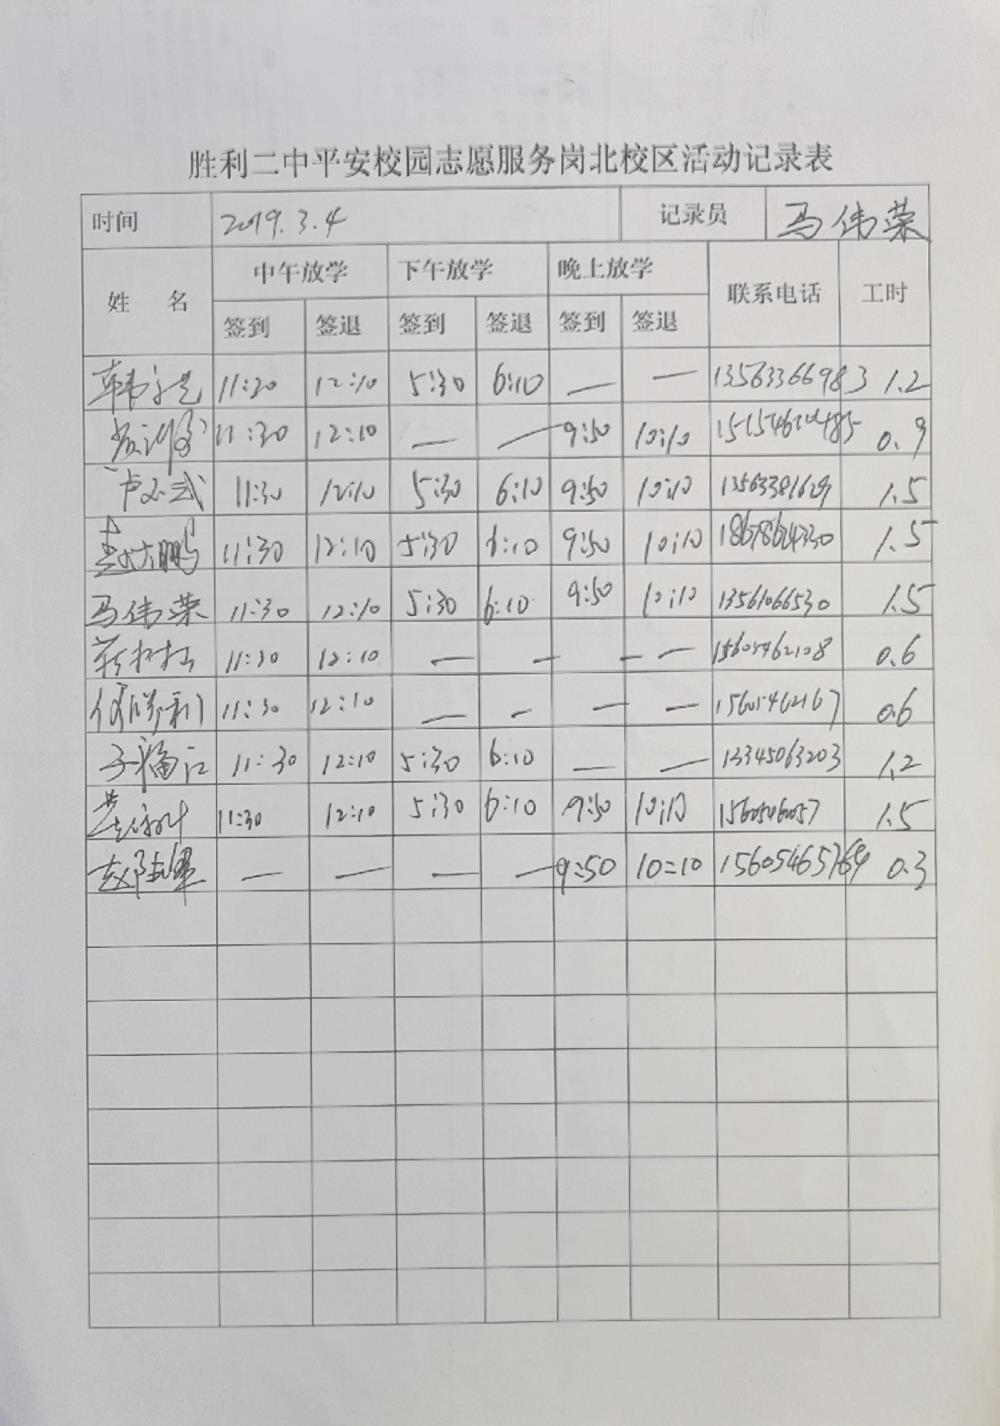 胜利二中平安校园志愿服务岗北校区活动记录表
时间 2019.3.4 记录员 马伟荣
姓 名 中午放学 下午放学 晚上放学 联系电话 工时
签到 签退 签到 签退 签到 签退
11:30 12:10 5:30 6:10 — — 13563366983 1.2
11:30 12:10 — — 9:50 10:10 0.9
11:30 12:10 5:30 6:10 9:50 10:10 13563381629 1.5
11:30 12:10 5:30 6:10 9:50 10:10 1.5
马伟荣 11:30 12:10 5:30 6:10 9:50 10:10 13561066530 1.5
11:30 12:10 — — — — 15605462108 0.6
11:30 12:10 — — — — 15605462167 0.6
11:30 12:10 5:30 6:10 — — 13345063203 1.2
11:30 12:10 5:30 6:10 9:50 10:10 1.5
— — — — 9:50 10:10 15605465769 0.3